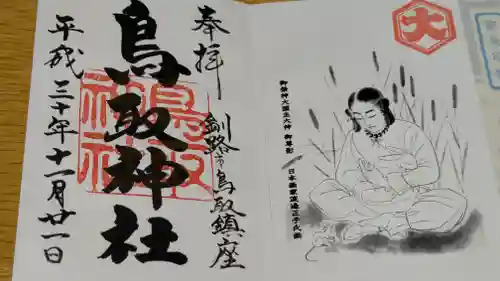 奉拝
釧路市鳥取鎮座
鳥取神社
平成三十年十一月廿一日
鳥取神社
大
御祭神大國主大神 御尊影
日本画家